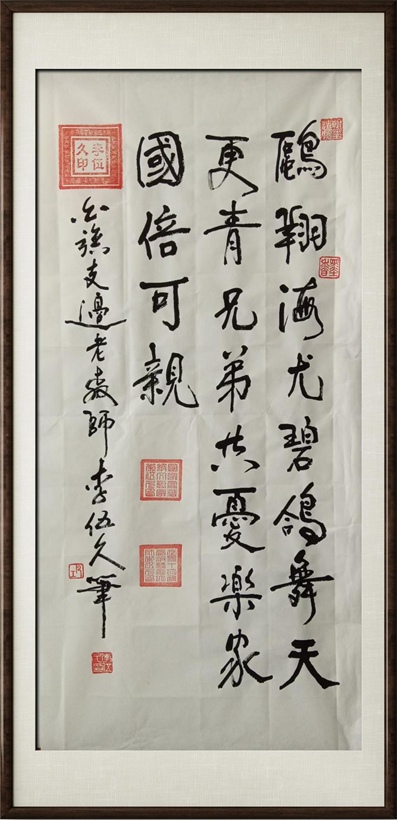 鷗翔海尤碧鴿舞天
更青兄弟共憂樂家
國倍可親
支邊老教師李伍久筆
李伍久印